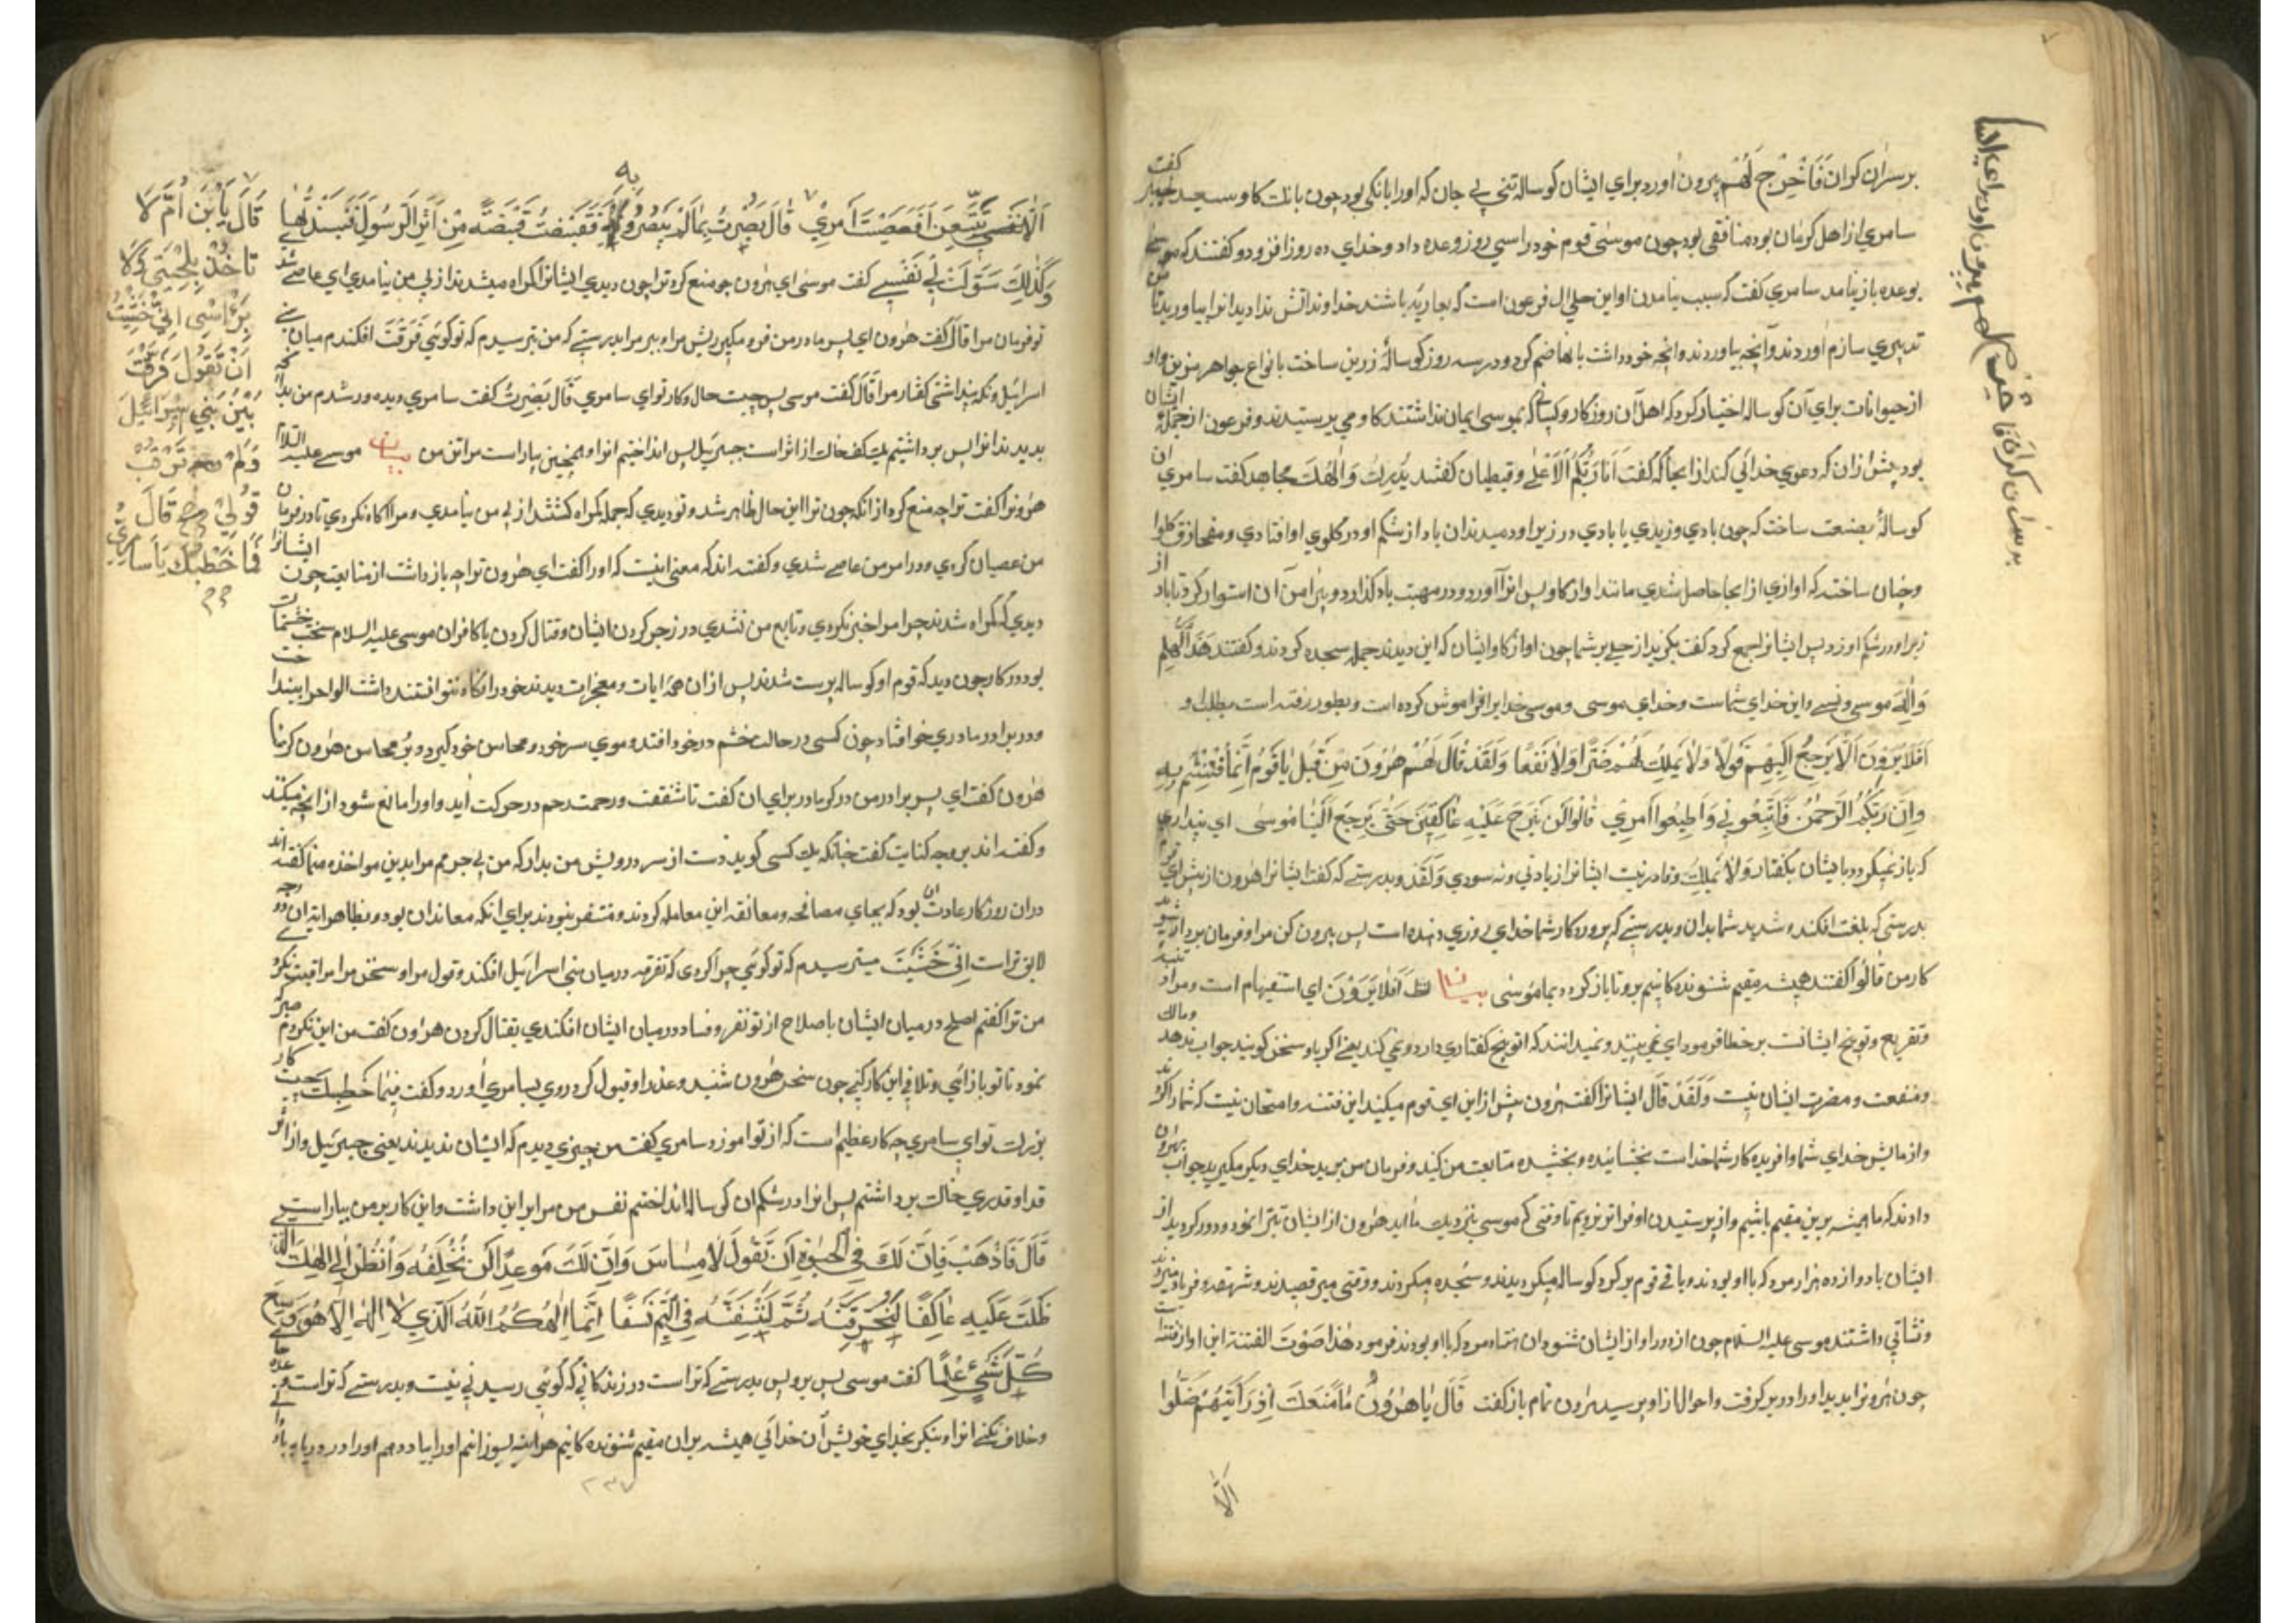 بر سران کران فَاَخْرَجَ لَهُمْ بیرون اورد برای ایشان کوساله تنی بی جان که اورا بانکی بود چون بانک کاو سعید جبیر کفت
سامری از اهل کرمان بود منافقی بود چون موسی قوم خود را سی روز وعده داد و خدای ده روز افزود و کفتند که موسی
بوعده باز نیامد سامری کفت که سبب نیامدن او این حلی ال فرعون است که بعاریه باشند خداوندانش ندادید انرا بیاورید تا من
تدبیری سازم اوردند و آنچه بیاوردند و انچه خود داشت با انها ضم کرد و در سه روز کوسالهٔ زرین ساخت بانواع جواهر مزین و او
از حیوانات برای آن کوساله اختیار کرد که اهل آن روزکار و کسانی که بموسی ایمان نداشتند کاو می پرستیدند و فرعون از جمله ایشان
بود پیش از ان که دعوی خدائی کند از انجا که کفت اَنَا رَبُّکُمُ الْاَعْلٰی و قبطیان کفتند یَذَرَکَ وَ اٰلِهَتَکَ مجاهد کفت سامری ان
کوسالهٔ بصنعت ساخت که چون بادی وزیدی یا بادی در زیر او دمیدندان باد از شکم او در کلوی او افتادی و
وچنان ساخت که اوازی از انجا حاصل شدی مانند اواز کاو پس انرا آورد و در مهبت باد کذارد و پیرامن آن استوار کرد تا باد از
زیر او در شکم او زد پس ایشانرا جمع کرد کفت بکیرید از حلی بر شما چون اواز کاو ایشان که این دیدند جمله سجده کردند و کفتند هٰذَا اِلٰهُکُمْ
وَ اِلٰهُ موسی و نسی و این خدای شماست و خدای موسی و موسی خدایرا فراموش کرده است و بطور رفته است بطلب او
اَفَلَا یَرَوْنَ اَلَّا یَرْجِعُ اِلَیْهِمْ قَوْلًا وَلَا یَمْلِکُ لَهُمْ ضَرًّا وَلَا نَفْعًا وَلَقَدْ قَالَ لَهُمْ هٰرُونُ مِنْ قَبْلُ یَا قَوْمِ اِنَّمَا فُتِنْتُمْ بِهِ
وَاِنَّ رَبَّکُمُ الرَّحْمٰنُ فَاتَّبِعُونِی وَاَطِیعُوا اَمْرِی قَالُوا لَنْ نَبْرَحَ عَلَیْهِ عَاکِفِینَ حَتّٰی یَرْجِعَ اِلَیْنَا مُوسٰی ای نپنداری
که باز نمیکردد بایشان بکفتار وَلَا یَمْلِکُ و قادر نیست ایشانرا زیادتی و نه سودی وَلَقَدْ و بدرستی که کفت ایشانرا هرون از پیش ای قوم
بدرستی که بلغت افکنده شدید شما بدان و بدرستی که پروردکار شما خدای روزی دهنده است پس پیرون کن مرا و فرمان بردار شوید
کار من قَالُوا کفتند همیشه مقیم شنونده کانیم برو تا باز کردد بما موسی بیان اَفَلَا یَرَوْنَ ای استفهام است و مراد تنبیه
و تقریع و توبیخ ایشانست بر خطا فرمود ای نمی بینند و نمیدانند که او هیچ کفتاری دارد و نمی کند یعنی اکر باو سخن کویند جواب ندهد و مالک
و منفعت و مضرت ایشان نیست وَلَقَدْ قَالَ ایشانرا کفت هرون پیش از این ای قوم میکنید این فتنه و امتحان نیست که شما را کردند
و ازمایش خدای شما و افریده کار شما خداست بخشاینده و بخشیده متابعت من کنید و فرمان من برید خدای دیکر مکیرید جواب هرون
دادند که ما همیشه برین مقیم باشیم و از پرستیدن او فراتر نرویم تا وقتی که موسی بنزدیک ما اید هرون از ایشان تبرا نمود و دور کردید از
ایشان با دوازده هزار مرد که با او بودند و باقی قوم بر کرد کوساله میکردیدند و سجده میکردند و وقتی میرقصیدند و شهقه و فریاد میزدند
و نشاتی داشتند موسی علیه السلام چون از دور اواز ایشان شنود ان هفتاد مرد که با او بودند فرمود هٰذَا صَوْتُ الفتنة این اواز فتنه است
چون هرونرا بدید او را در بر کرفت و احوال از او پرسید هرون تمام باز کفت قَالَ یَا هٰرُونُ مَا مَنَعَکَ اِذْ رَاَیْتَهُمْ ضَلُّوا
اَلَّا
اَلَّا تَتَّبِعَنِ اَفَعَصَیْتَ اَمْرِی قَالَ بَصُرْتُ بِمَا لَمْ یَبْصُرُوا بِهِ فَقَبَضْتُ قَبْضَةً مِنْ اَثَرِ الرَّسُولِ فَنَبَذْتُهَا
وَکَذٰلِکَ سَوَّلَتْ لِی نَفْسِی کفت موسی ای هرون چو منع کرد ترا چون دیدی ایشانرا کمراه میشدند از پی من نیامدی ای عاصی شد
تو فرمان مرا قَالَ کفت هرون ای پسر مادر من فرو مکیر ریش مرا و بر مرا بدرستی که من بترسیدم که تو کوئی فَرَّقْتَ افکندم میان بنی
اسرائیل و نکه پنداشتی کفتار مرا قَالَ کفت موسی پس چیست حال و کار تو ای سامری قَالَ بَصُرْتُ کفت سامری دیده ور شدم من بدانکه
بدیدند انرا پس برداشتیم یک کف خاک از اثر است جبرئیل پس انداختیم انرا و همچنین بیاراست مرا تن من بیان موسی علیه السلام
هرونرا کفت ترا چه منع کرد از انکه چون ترا این حال ظاهر شد و تو دیدی که جمله کمراه کشتند از پی من نیامدی و مرا اکاه نکردی تا در فرمان
من عصیان کردی و در امر من عاصی شدی و کفته اند که معنی اینست که اورا کفت ای هرون ترا چه باز داشت از متابعت چون ایشانرا
دیدی که کمراه شدند چرا مرا خبر نکردی و تابع من نشدی در زجر کردن ایشان و قتال کردن با کافران موسی علیه السلام سخت خشمناک
بود در کار چون دید که قوم او کوساله پرست شدند پس از ان همه ایات و معجزات دیدند خود را نکاه نتوانستند داشت الواح را بینداخت
و در برادر مادری خو افتاد چون کسی در حالت خشم در خود افتد و موی سر خود و محاسن خود کیرد و بر محاسن هرون
هرون کفت ای پسر برادر من در کو یادر برای ان کفت تا شفقت و رحمت رحم در حرکت اید و اورا مانع شود از انچه میکند
و کفته اند بر وجه کنایت کفت چنانکه یک کسی کوید دست از سر و ریش من بدار که من بی جرمم مرا بدین مواخذه منما کفته اند
در ان روزکار عادت ان بود که بجای مصافحه و معانقه این معامله کردند و متنفر نبودند برای انکه معاندان بود و بظاهر ایة ان دو وجه
لایق تر است اِنِّی خَشِیتُ میترسیدم که تو کوئی چرا کردی که تفرقه در میان بنی اسرائیل افکند و قول مرا و سخن مرا مراقبت نکرد
من ترا کفتم اصلح در میان ایشان باصلاح از تو نفر و فساد در میان ایشان افکندی بقتال کردن هرون کفت من این نکردم صبر که
نمود تا تو باز ائی و تلافی این کار کنی چون سخن هرون شنید و عذر او قبول کرد روی بسامری اورد و کفت فَمَا خَطْبُکَ چیست کار
بزرک تو ای سامری چه کار عظیم است که از تو اموزد سامری کفت من چیزی دیدم که ایشان ندیدند یعنی جبرئیل و از اثر
قد او قدری خاک برداشتم پس انرا در شکم ان کوساله انداختم نفس من مرا بر این داشت و این کار بر من بیاراست
قَالَ فَاذْهَبْ فَاِنَّ لَکَ فِی الْحَیٰوةِ اَنْ تَقُولَ لَا مِسَاسَ وَاِنَّ لَکَ مَوْعِدًا لَنْ تُخْلَفَهُ وَانْظُرْ اِلٰی اِلٰهِکَ الَّذِی
ظَلْتَ عَلَیْهِ عَاکِفًا لَنُحَرِّقَنَّهُ ثُمَّ لَنَنْسِفَنَّهُ فِی الْیَمِّ نَسْفًا اِنَّمَا اِلٰهُکُمُ اللّٰهُ الَّذِی لَا اِلٰهَ اِلَّا هُوَ وَسِعَ
کُلَّ شَیْءٍ عِلْمًا کفت موسی پس برو پس بدرستی که تراست در زندکانی که کوئی رسیدنی نیست و بدرستی که تراست وعده جای
و خلاف نکنی انرا و بنکر بخدای خویش آن خدائی همیشه بران مقیم شنونده کانیم هراینه بسوزانیم اورا بباد دهم اورا در دریا
قَالَ یَابْنَ اُمَّ لَا
تَاخُذْ بِلِحْیَتِی وَلَا
بِرَاْسِی اِنِّی خَشِیتُ
اَنْ تَقُولَ فَرَّقْتَ
بَیْنَ بَنِی اِسْرَائِیلَ
وَلَمْ تَرْقُبْ
قَوْلِی قَالَ
فَمَا خَطْبُکَ یَا سَامِرِیُّ
۲۳۷